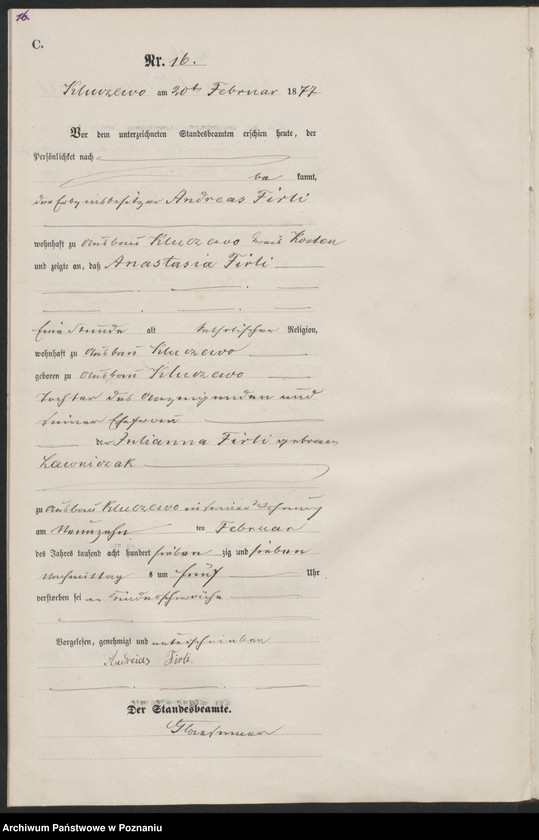 16.
C.
Nr. 16.
Kluczewo am 20ten Februar 1877
Vor dem unterzeichneten Standesbeamten erschien heute, der
Persönlichkeit nach
be kannt,
der Erbzinsbesitzer Andreas Firli
wohnhaft zu Ausbau Kluczewo Kreis Kosten
und zeigte an, daß Anastasia Firli
Eine Stunde alt katholischer Religion,
wohnhaft zu Ausbau Kluczewo
geboren zu Ausbau Kluczewo
Tochter des Anzeigenden und
seiner Ehefrau
der Julianna Firli geborenen
Lawniczak
zu Ausbau Kluczewo in seiner Wohnung
am Neunzehn ten Februar
des Jahres tausend acht hundert sieben zig und sieben
Nachmittag s um fünf Uhr
verstorben sei an Kinderschwäche
Vorgelesen, genehmigt und unterschrieben
Andreas Firli
Der Standesbeamte.
Archiwum Państwowe w Poznaniu